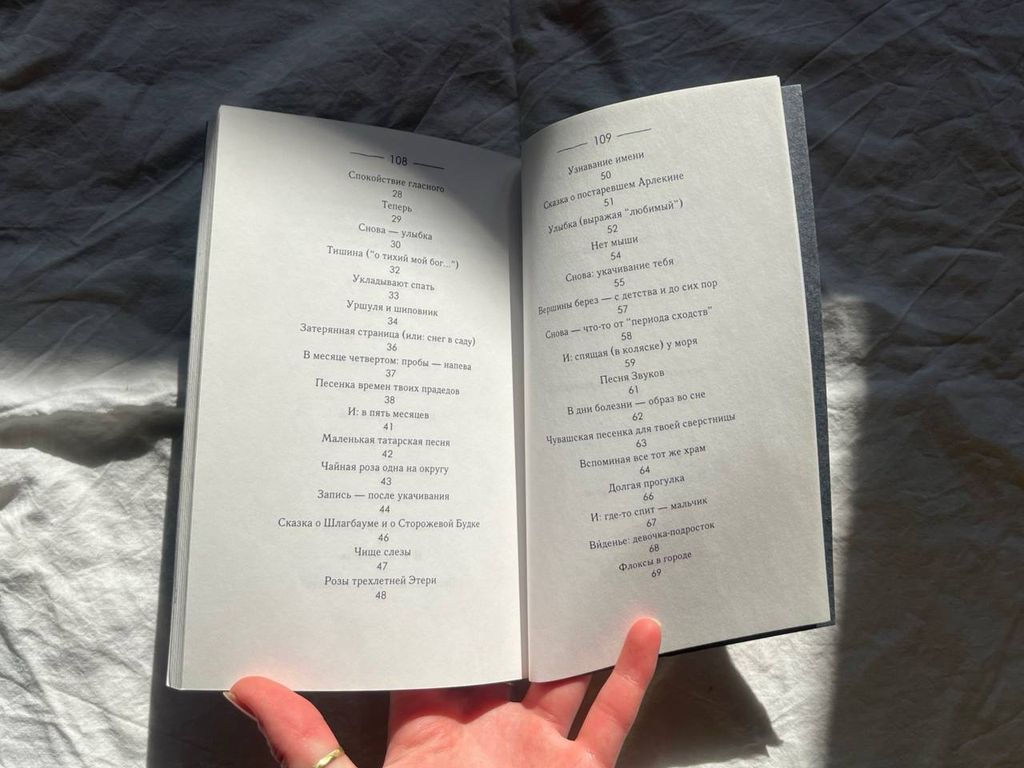 108
Спокойствие гласного
28
Теперь
29
Снова — улыбка
30
Тишина ("о тихий мой бог...")
32
Укладывают спать
33
Уршуля и шиповник
34
Затерянная страница (или: снег в саду)
36
В месяце четвертом: пробы — напева
37
Песенка времен твоих прадедов
38
И: в пять месяцев
41
Маленькая татарская песня
42
Чайная роза одна на округу
43
Запись — после укачивания
44
Сказка о Шлагбауме и о Сторожевой Будке
46
Чище слезы
47
Розы трехлетней Этери
48
109
Узнавание имени
50
Сказка о постаревшем Арлекине
51
Улыбка (выражая "любимый")
52
Нет мыши
54
Снова: укачивание тебя
55
Вершины берез — с детства и до сих пор
57
Снова — что-то от "периода сходств"
58
И: спящая (в коляске) у моря
59
Песня Звуков
61
В дни болезни — образ во сне
62
Чувашская песенка для твоей сверстницы
63
Вспоминая все тот же храм
64
Долгая прогулка
66
И: где-то спит — мальчик
67
Ви́денье: девочка-подросток
68
Флоксы в городе
69